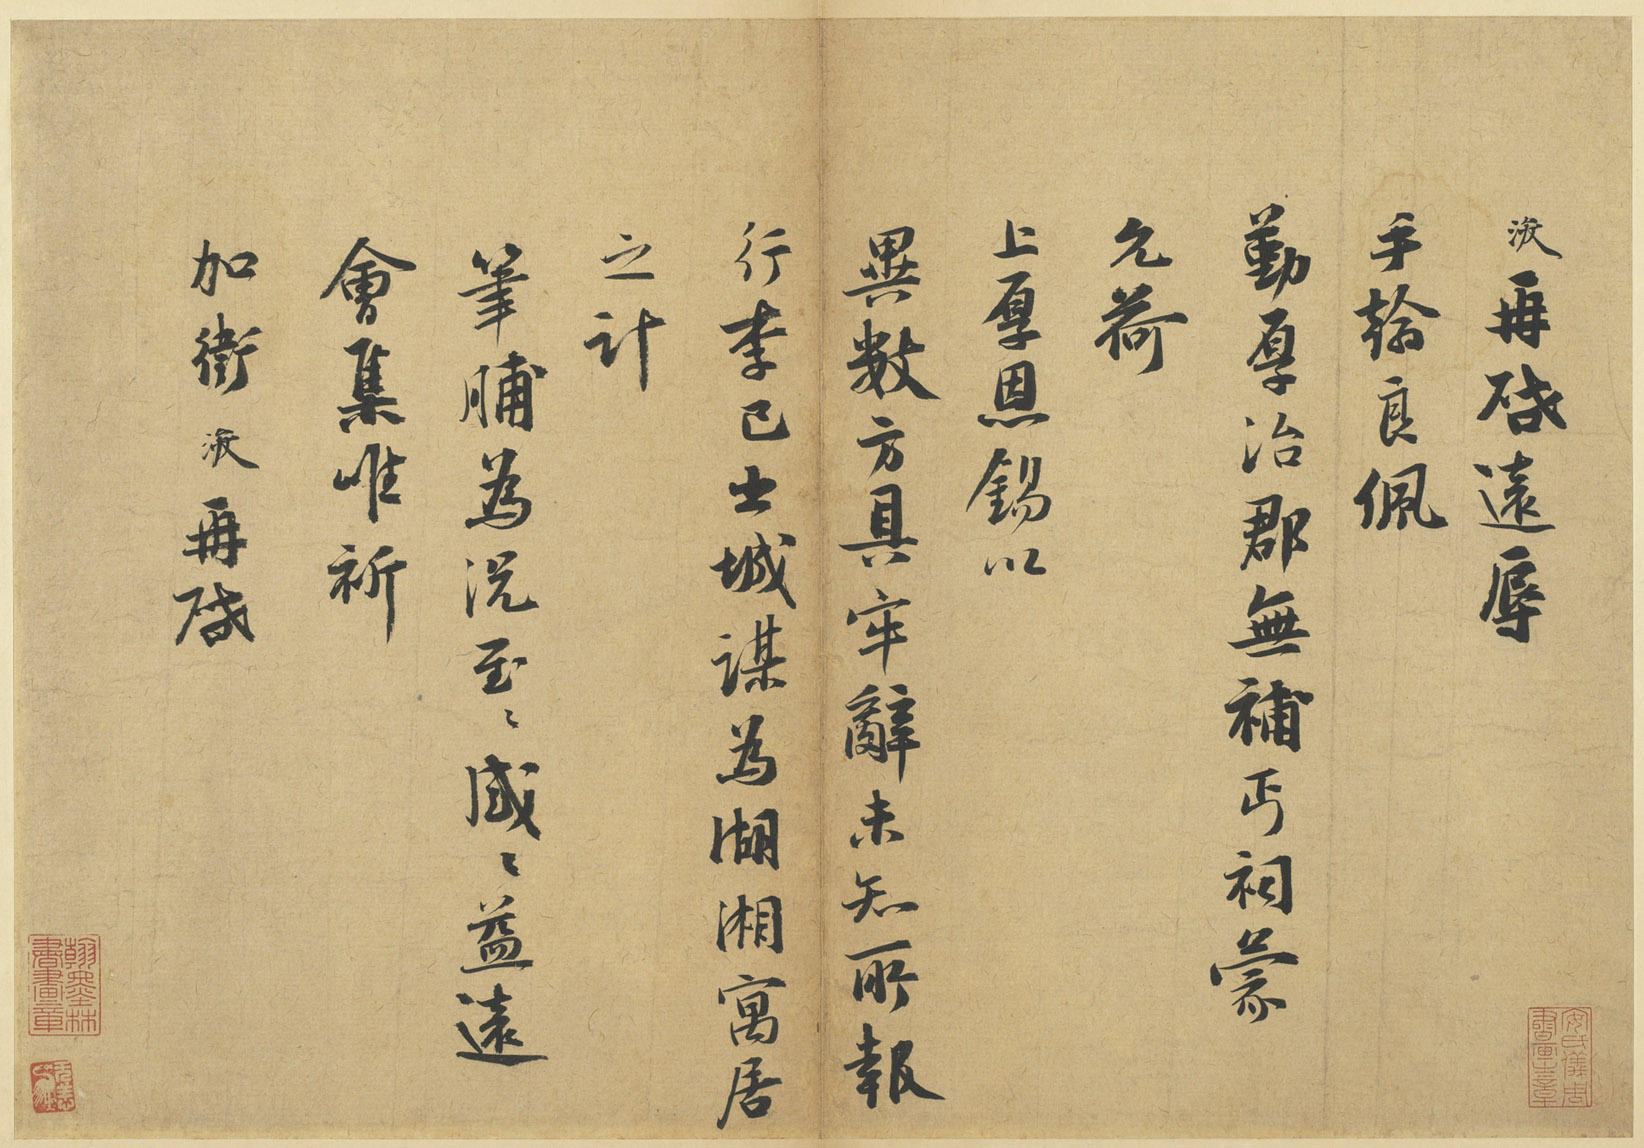 浚再啟遠辱
手翰良佩
勤厚治郡無補丐祠蒙
允荷
上厚恩錫以
異數方具牢辭未知所報
行李已出城謀為湖湘寓居
之計
筆脯為況至〻感〻益遠
會集唯祈
加衛浚再啟
安氏儀周書畫之章
翰墨林書畫章